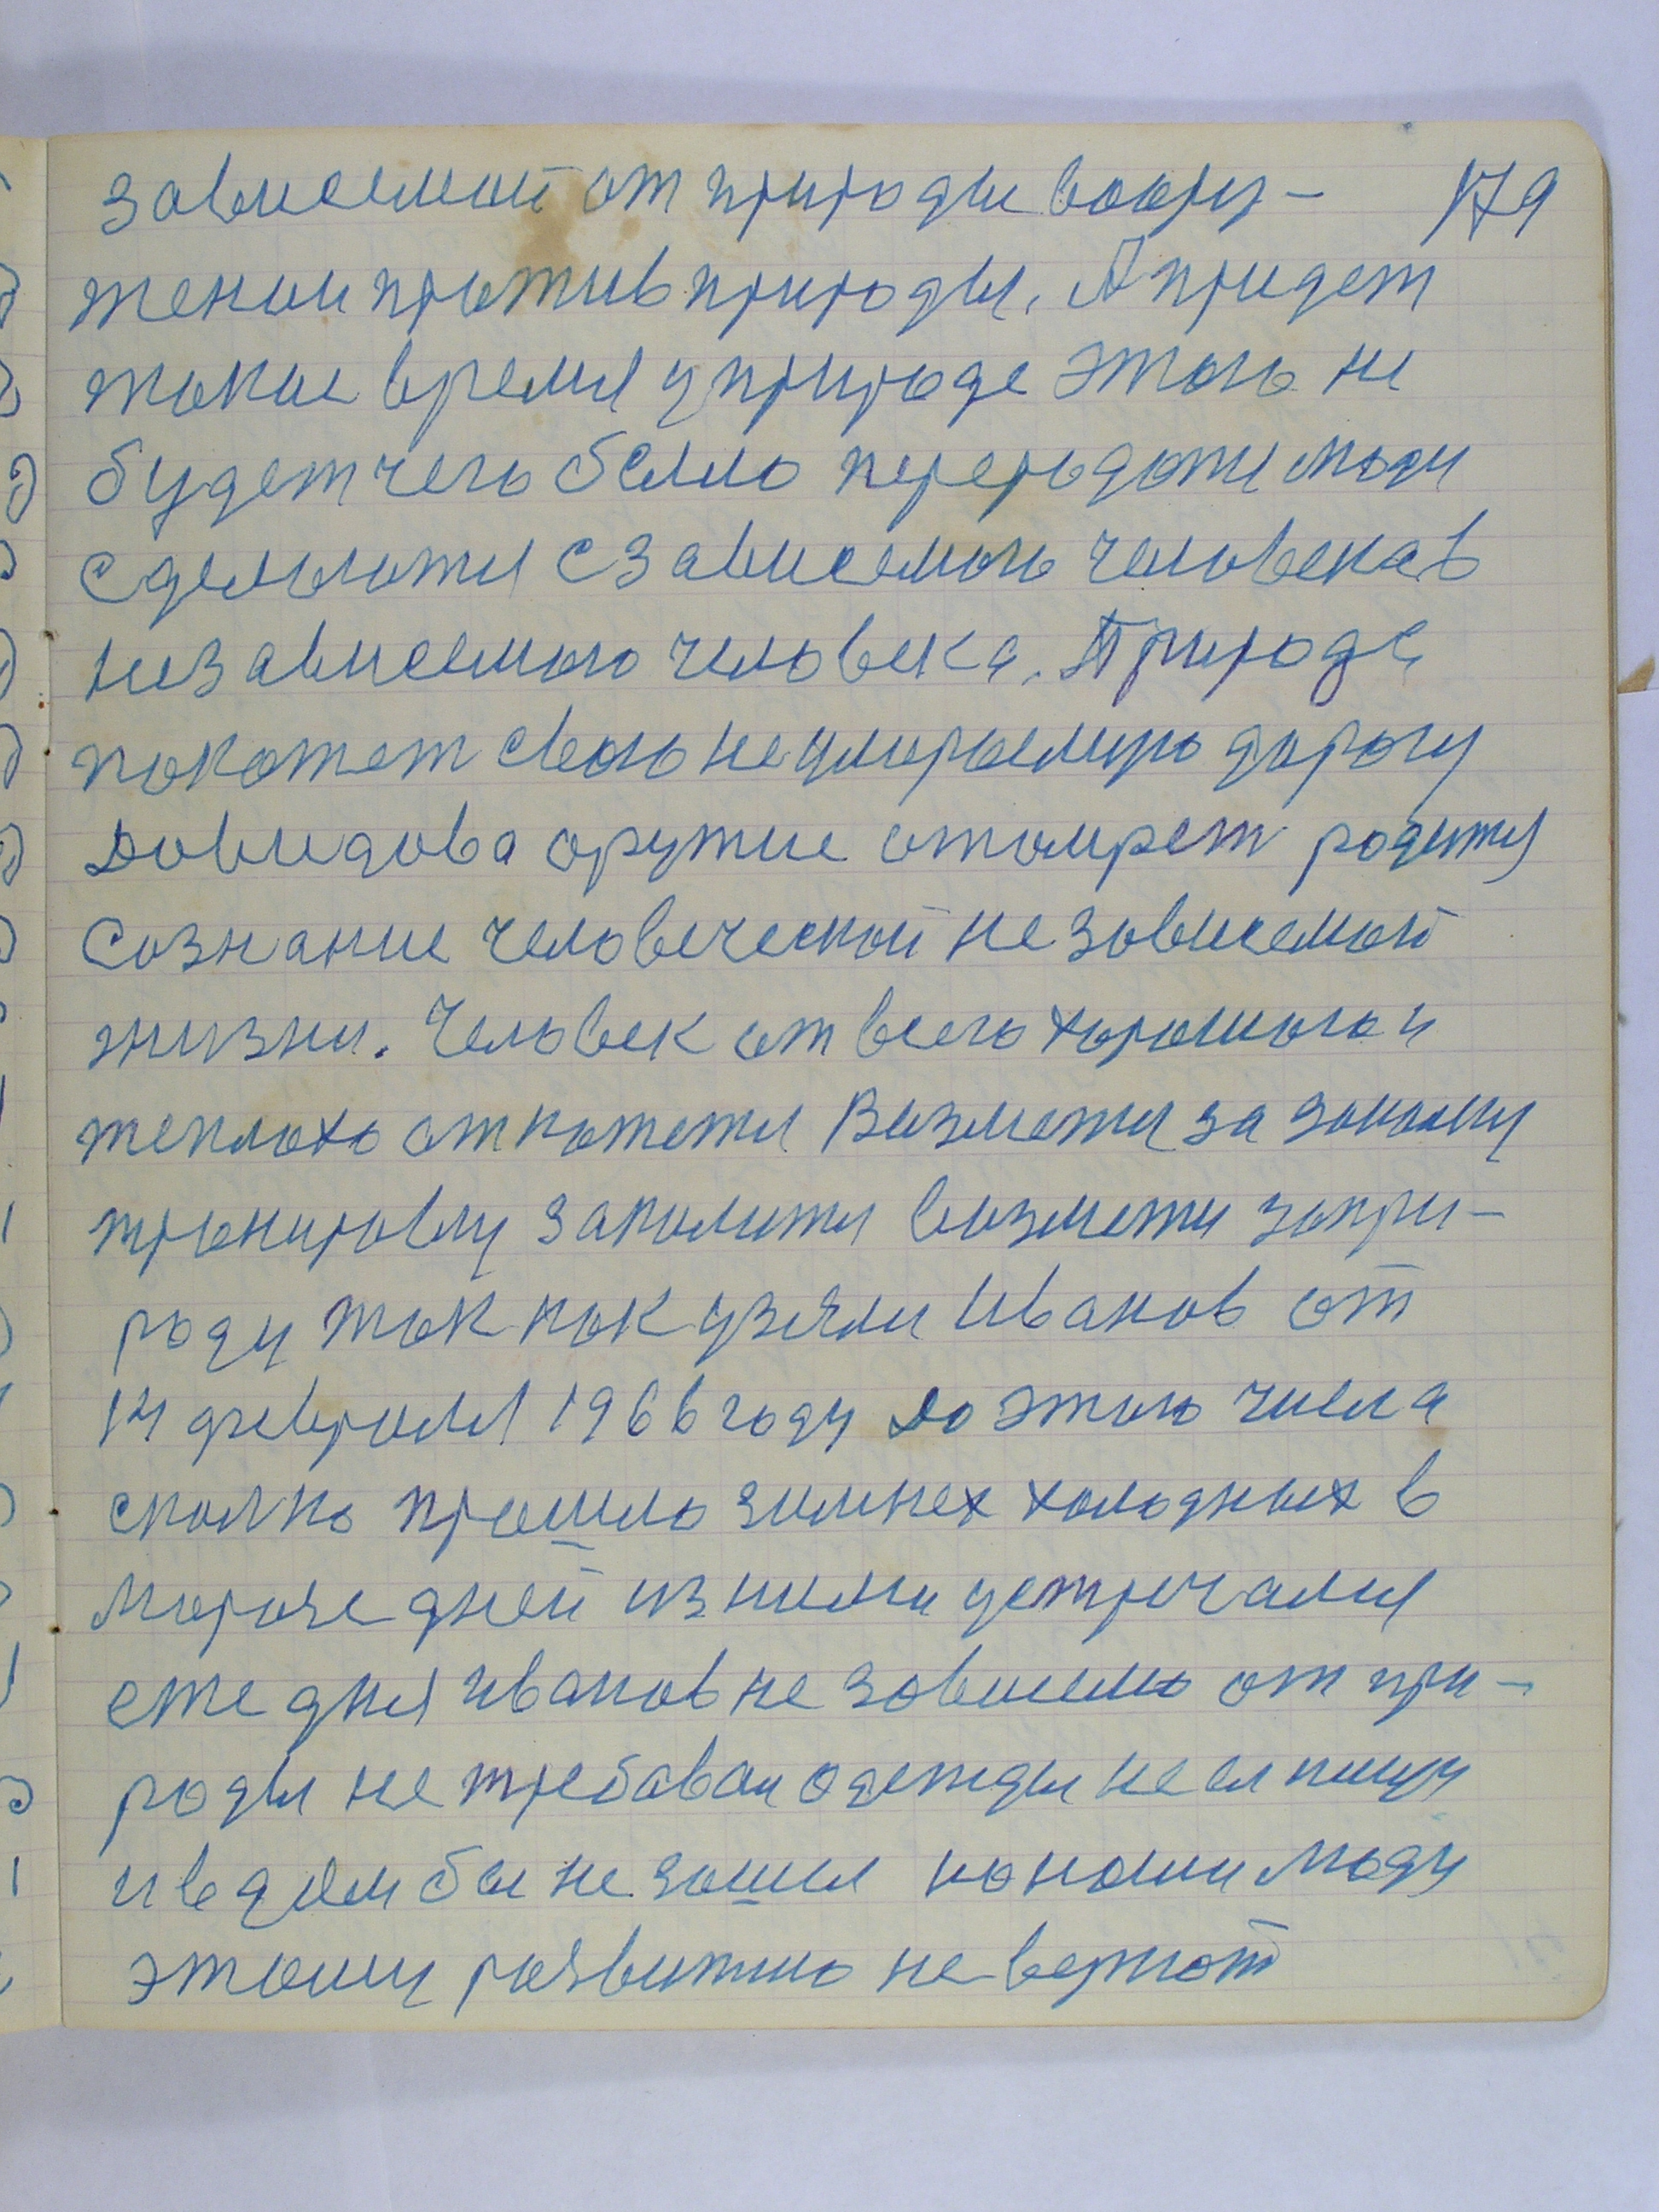 зависемой от природы воору- 179
жении против природы. А придет
такое время у природе этого не
будет чего было перерадатся люди
сделаются с зависемого человека в
независемого человека. Природа
покажет свою неумираемую дорогу
Довидова оружие отомрет родится
сознание человеческой независемой
жизни. Человек от всего хорошого и
теплохо откажется Возмется за
тренировку закалится возмется запри-
роду так как узяли Иванов от
14 февраля 1966 году до этого числа
сколко прошло зимнех холодных в
морозе дней из ними устречался
еже дня Иванов не зависемо от при-
роды не требовал одежды не ел пищу
и в дом бы не зашел но наши люди
этому развитию не верют